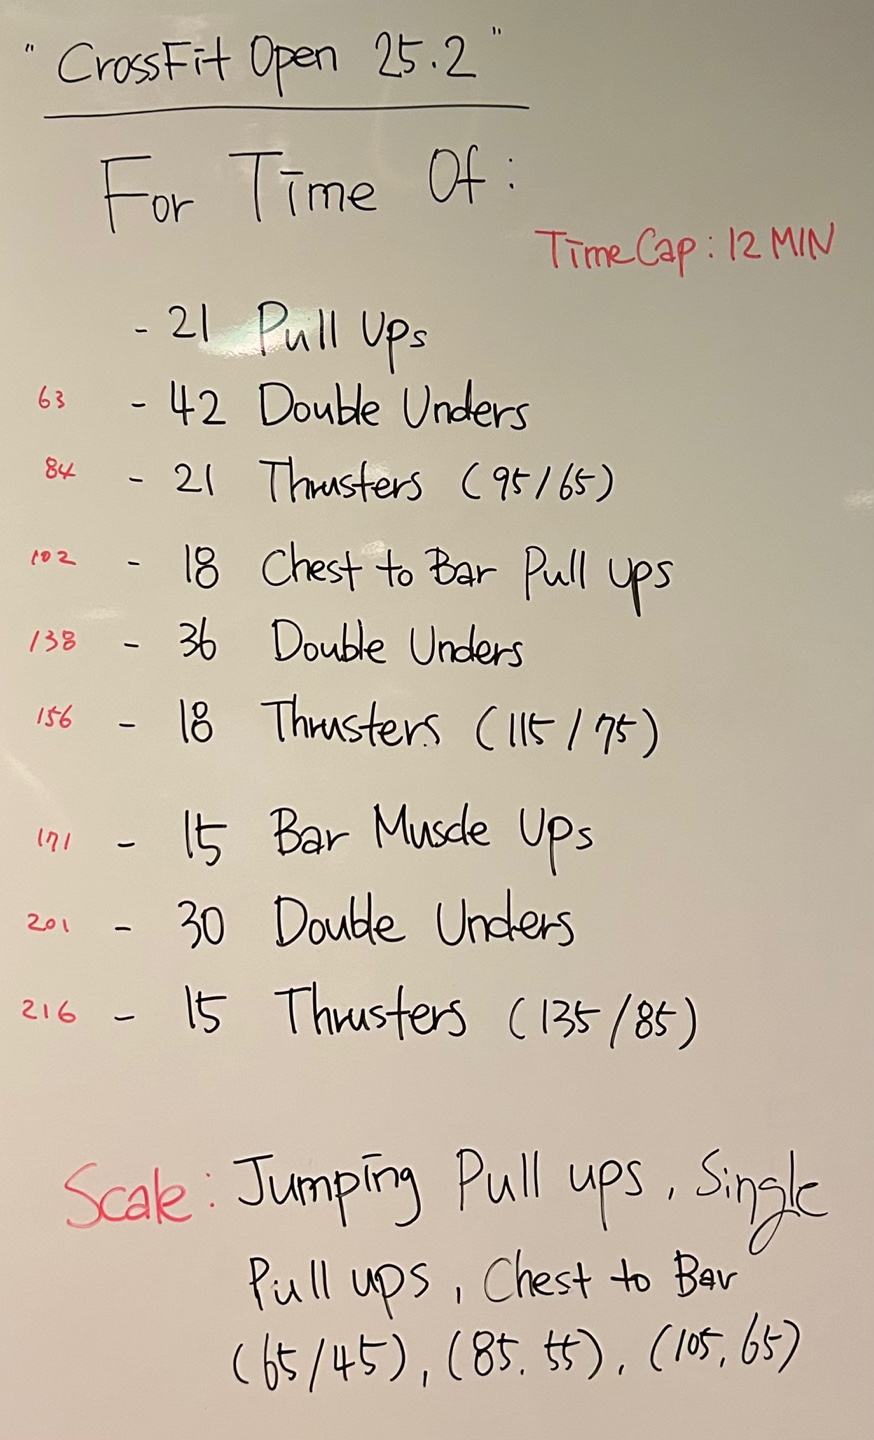 "CrossFit Open 25.2"
For Time Of:
Time Cap: 12 MIN
- 21 Pull Ups
63 - 42 Double Unders
84 - 21 Thrusters (95/65)
102 - 18 Chest to Bar Pull ups
138 - 36 Double Unders
156 - 18 Thrusters (115/75)
171 - 15 Bar Muscle Ups
201 - 30 Double Unders
216 - 15 Thrusters (135/85)
Scale: Jumping Pull ups, Single
Pull ups, Chest to Bar
(65/45), (85.55), (105,65)